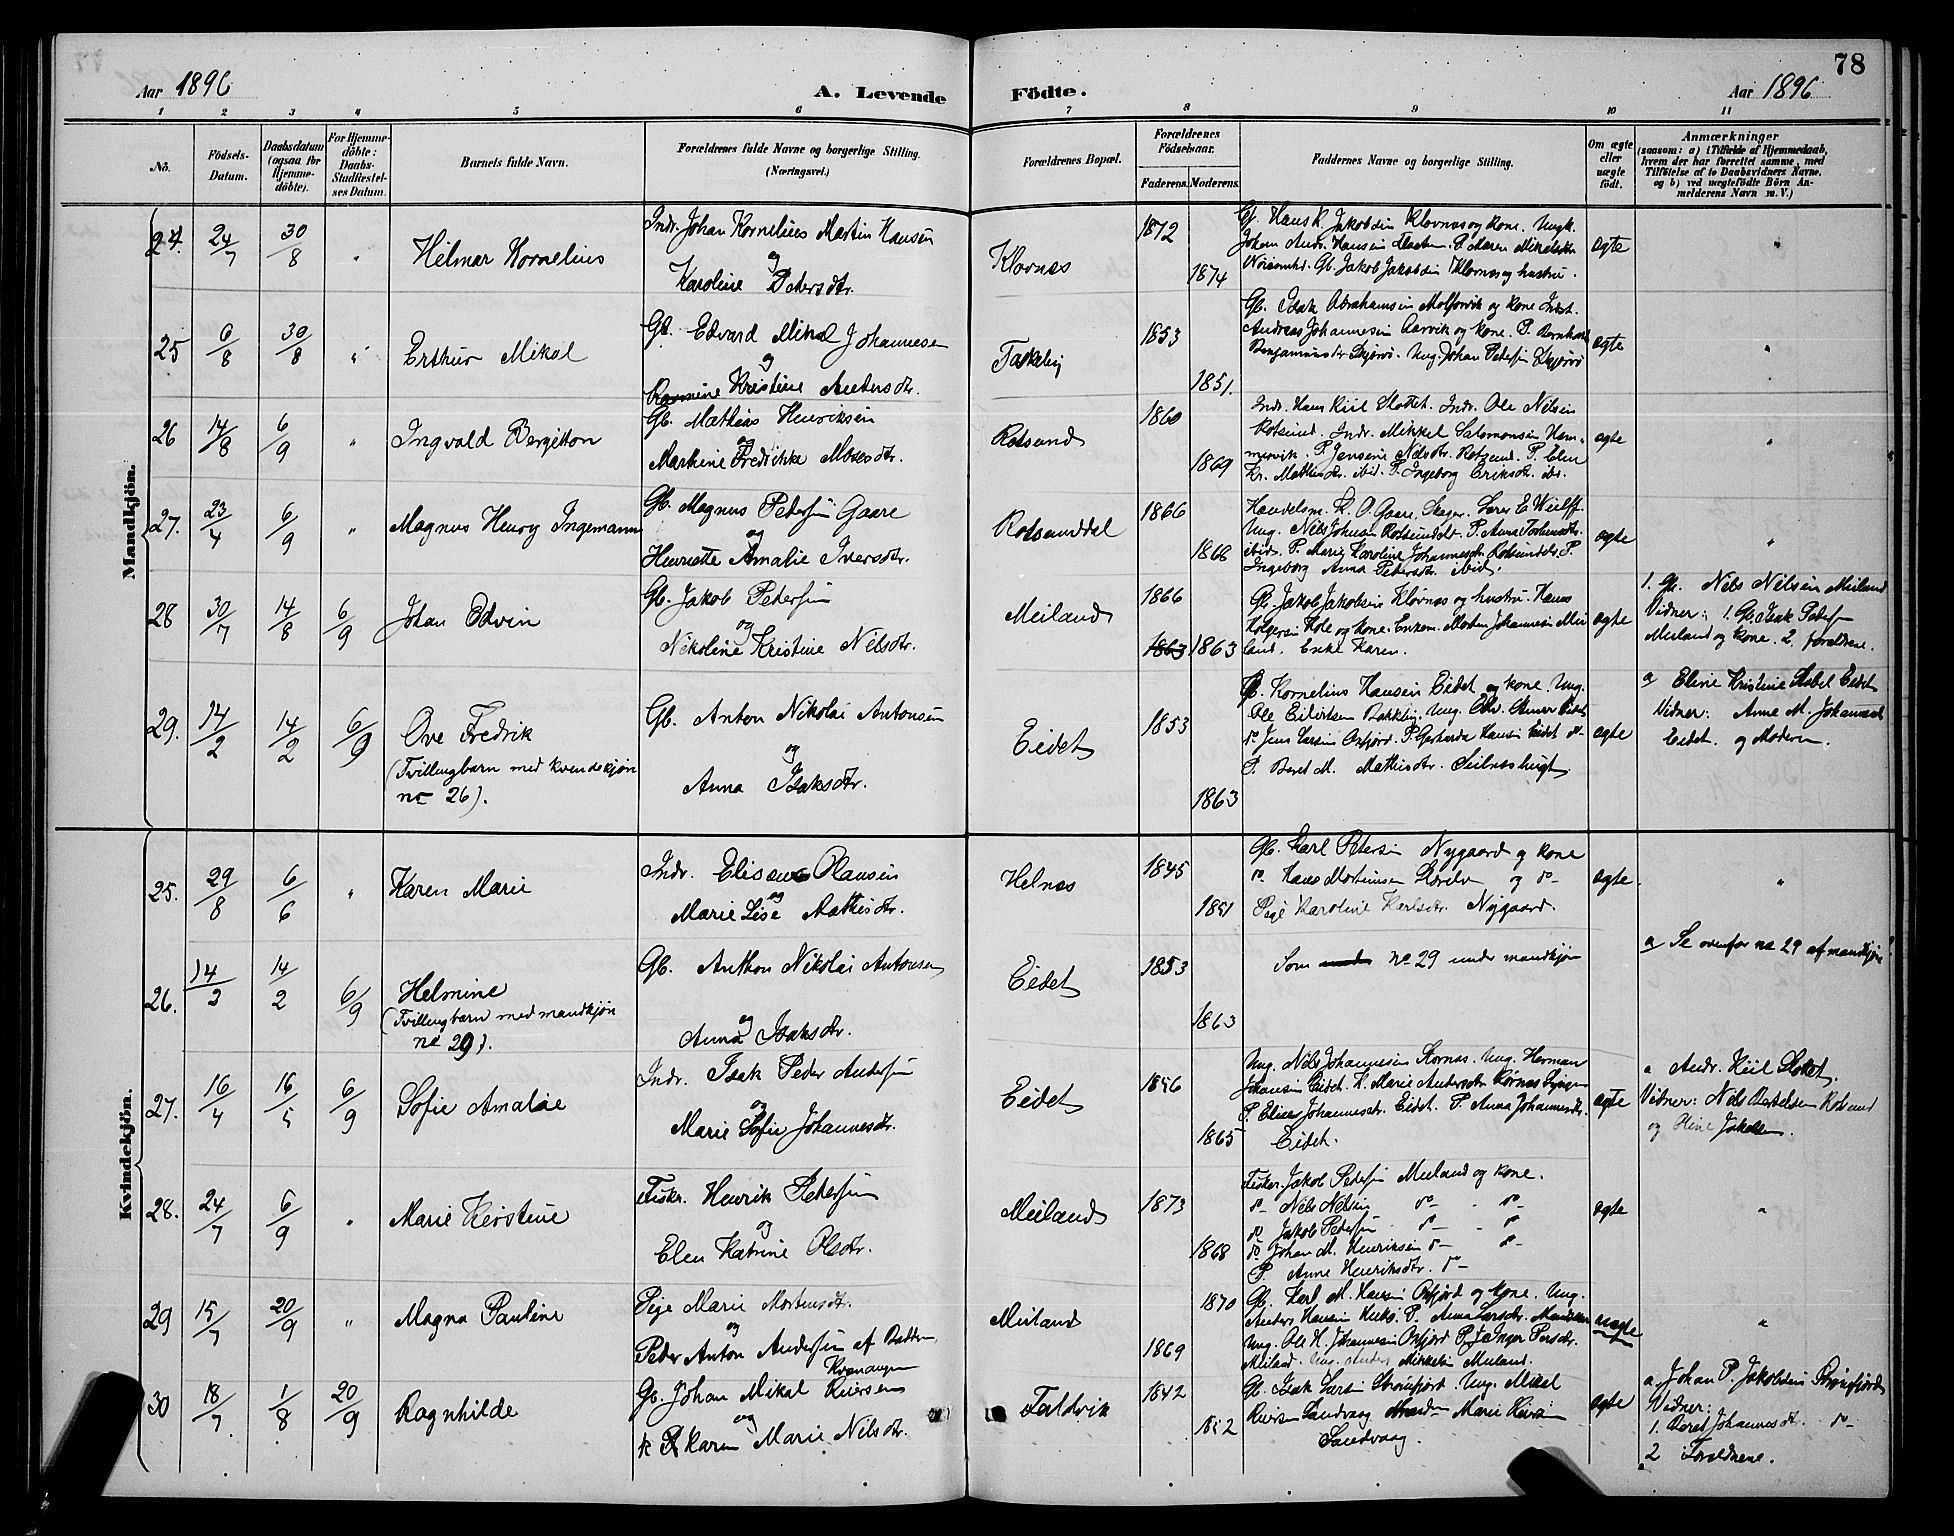 78
Aar 1896
A. Levende Födte.
Aar 1896
1 2 3 4 5 6 7 8 9 10 11
No.
Födsels-Datum.
Daabsdatum (ogsaa for Hjemme-döbte).
For Hjemme-döbte: Daabs-Stadfæstel-ses Datum.
Barnets fulde Navn.
Forældrenes fulde Navne og borgerlige Stilling.
(Næringsvei.)
Forældrenes Bopæl.
Forældrenes Födselsaar.
Faderens. Moderens.
Faddernes Navne og borgerlige Stilling.
Om ægte eller uægte födt.
Anmærkninger
(saasom: a) i Tilfælde af Hjemmedaab, hvem der har forrettet samme, med Tilföielse af to Daabsvidners Navne, og b) ved uægtefödte Börn An-melderens Navn m. V.)
Mandkjön.
24. 24/7 30/8 " Helmar Kornelius
Indr. Johan Kornelius Martin Hansen
og
Karoline Petersdtr.
Klovnes 1872 1874
Gb. Hans R. Jakobsen Klovnes og kone. Ungk.
Johan Andr. Hansen
Gb. Jakob Jakobsen Klovnes og hustru.
ægte "
25 6/8 30/8 " Erthur Mikal
Gb. Edvard Mikal Johannesen
og
Kristine Andersdtr.
Taskeby 1853 1851.
Gb. Isak Abrahamsen og kone Indr.
Andreas Johannesen Aarvik og kone. P. Bernhard
Benjaminsdtr Skjervö. Ung. Johan Pedersen Skjervö
ægte "
26 14/8 6/9 " Ingvald Bergitton
Gb. Mathias Henriksen
og
Martine Fredrikke Mosesdtr.
Rotsund 1860 1869
Indr. Hans Kiil Slottet. Indr. Ole Nilsen
Rotsund. Indr. Mikkel Salomonsen Ham-
mervik. P. Jensine Nilsdtr. Rotsund. P. Elen
Kr. Mathisdtr. ibid. P. Ingeborg Eriksdtr. ibd.
ægte "
27. 23/4 6/9 " Magnus Henry Ingemann
Gb. Magnus Pedersen Gaare
og
Henriette Amalie Iversdtr.
Rotsunddal 1866 1868
Handelsm. R. O. Gaare Hager. Lærer E. Wulff.
Ung. Nils Johnsen Rotsundelv. P. Anne Johansdtr.
ibid. P. Marie Karoline Johannesdtr. Rotsundelv. P.
Ingeborg Anna Petersdtr. ibid.
ægte "
28 30/7 14/8 6/9 Johan Edvin
Gb. Jakob Pedersen
og
Nikoline Kristine Nilsdtr.
Meiland 1866 1863 1863
Gb. Jakob Jakobsen Klovnes og hustru. Hans
Holgersen Hole og kone. Enkem. Morten Johannesen Mei
land. Enke Karen.
ægte
1. Gb. Nils Nilsen Meiland
Vidner: 1. Gb. Isak Peders
Meiland og kone. 2. forældrene.
29. 14/2 14/2 6/9 Ove Fredrik
(Tvillingbarn med kvindekjön
no 26).
Gb. Anton Nikolai Antonsen
og
Anna Isaksdtr.
Eidet 1853 1863
Gb. Kornelius Hansen Eidet og kone. Ung.
Ole Eilertsen Bakkeby. Ung. Edv. Eidet
do Jens Larsen Oxfjord. P. Gerharda Hansen Eidet do-
P. Beret M. Mathisdtr. Seilneshugt.
ægte
a Eline Kristine Stabel Eidet
Vidner: Anne M. Johannesdtr
Eidet. og Moderen.
Kvindekjön.
25. 29/8 6/6 " Karen Marie
Indr. Eliseus Olausen
og
Marie Lise Mathisdtr.
Helnes 1845 1851
Gb. Karl Petersen Nygaard og kone
do. Hans Mortensen Storelv og do-
Pige Karoline Karlsdtr. Nygaard.
ægte. "
26. 14/2 14/2 6/9 Helmine
(Tvillingbarn med mandkjön
no 29).
Gb. Anthon Nikolai Antonsen
og
Anna Isaksdtr.
Eidet 1853 1863
Som no 29 under mandkjön
a Se ovenfor no 29 af mandkjön
27. 16/4 16/5 6/9 Sofie Amalie
Indr. Isak Peder Andersen
og
Marie Sofie Johannesdtr.
Eidet 1856 1865
Ung. Nils Johannesen Stornes. Ung. Herman
Johansen Eidet. K. Marie Andersdtr. Lyngen
P. Elise Johannesdtr. Eidet. P. Anna Johannesdtr.
Eidet.
ægte
a Andr. Kiil Slottet.
Vidner: Nils Bertelsen Rotsund
og Oline Jakobsen.
28. 24/7 6/9 " Marie Kristine
Fisker. Henrik Pedersen
og
Elen Katrine Olsdtr.
Meiland 1873 1868
Fisker Jakob Pedersen Meiland og kone.
do- Nils Nilsen do- - do-
do Jakob Pedersen do- - do
do Johan M. Henriksen do- do-
P. Anne Henriksdtr. do-
ægte "
29 15/7 20/9 " Magna Pauline
Pige Marie Mortensdtr.
og
Peder Anton Andersen af Badderen
Kvænangen
Meiland 1870 1869
Gb. Karl M. Hansen Oxfjord og kone. Ung.
Anders Hansen P. Anna Larsdtr.
Ung. Ole H. Johannesen Oxfjord P. Inger Persdtr.
Meiland. Ung. Anders Mikkelsen Meiland.
uægte "
30 18/7 1/8 20/9 Ragnhilde
Gb. Johan Mikal Riersen
og
K Karen Marie Nilsdtr.
Faldvik 1842 1852
Gb. Isak Larsen Straumfjord. Ung. Mikal
Riersen Sandvaag Marie Riersen
Sandvaag.
ægte
a. Johan P. Jakobsen Straumfjord
Vidner:
1. Beret Johannesdtr. do-
2 Forældrene.